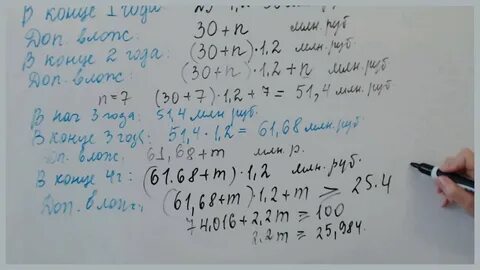 В конце 1 года:
Доп. влож: 30+n млн.руб
В конце 2 года: (30+n)·1,2 млн.руб
Доп. влож: (30+n)·1,2+n млн.руб
n=7 (30+7)·1,2+7=51,4 млн.руб.
В нач 3 года: 51,4 млн руб.
В конце 3 года: 51,4·1,2=61,68 млн.руб.
Доп. влож: 61,68+m млн.р.
В конце 4г: (61.68+m)·1,2 млн.руб.
Доп. влож: (61,68+m)·1,2+m ⩾ 25.4
74,016+2,2m ⩾ 100
2,2m ⩾ 25,984.